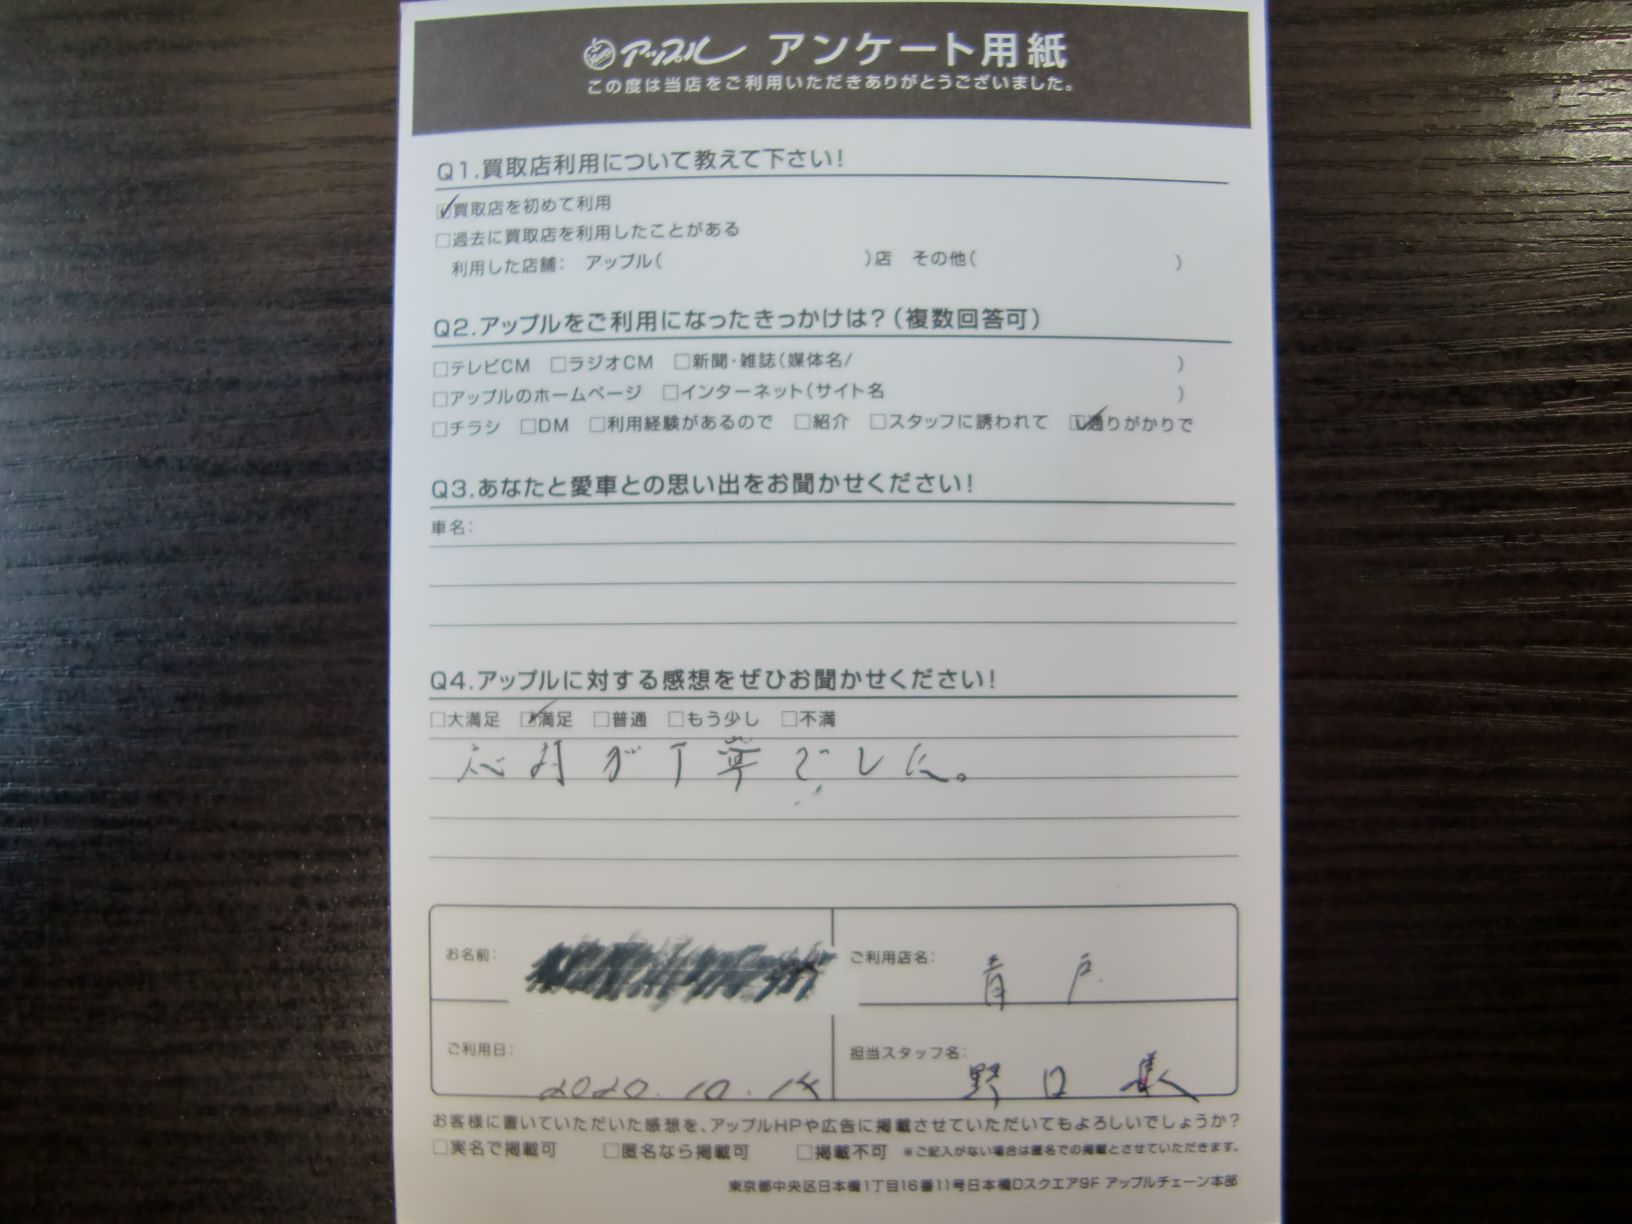 アップル アンケート用紙
この度は当店をご利用いただきありがとうございました。
Q1.買取店利用について教えて下さい!
☑買取店を初めて利用
□過去に買取店を利用したことがある
利用した店舗: アップル( )店 その他( )
Q2.アップルをご利用になったきっかけは?(複数回答可)
□テレビCM □ラジオCM □新聞・雑誌(媒体名/ )
□アップルのホームページ □インターネット(サイト名 )
□チラシ □DM □利用経験があるので □紹介 □スタッフに誘われて ☑通りがかりで
Q3.あなたと愛車との思い出をお聞かせください!
車名:
Q4.アップルに対する感想をぜひお聞かせください!
□大満足 ☑満足 □普通 □もう少し □不満
応対が丁寧でした。
お名前:
ご利用店名: 青戸
ご利用日: 2020.10.
担当スタッフ名: 野口 隼人
お客様に書いていただいた感想を、アップルHPや広告に掲載させていただいてもよろしいでしょうか?
□実名で掲載可 □匿名なら掲載可 □掲載不可 ※ご記入がない場合は匿名での掲載とさせていただきます。
東京都中央区日本橋1丁目16番11号日本橋Dスクエア9F アップルチェーン本部